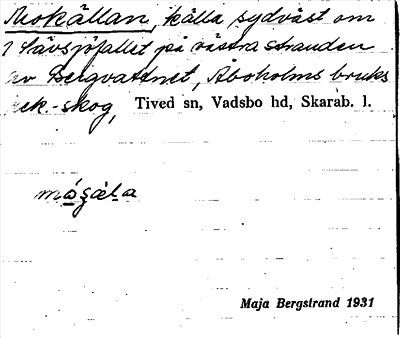 Mokällan, källa sydväst om
Sävsjöfallet på västra stranden
av Bergvattnet, Åboholms bruks
ek.-skog, Tived sn, Vadsbo hd, Skarab. l.
Maja Bergstrand 1931